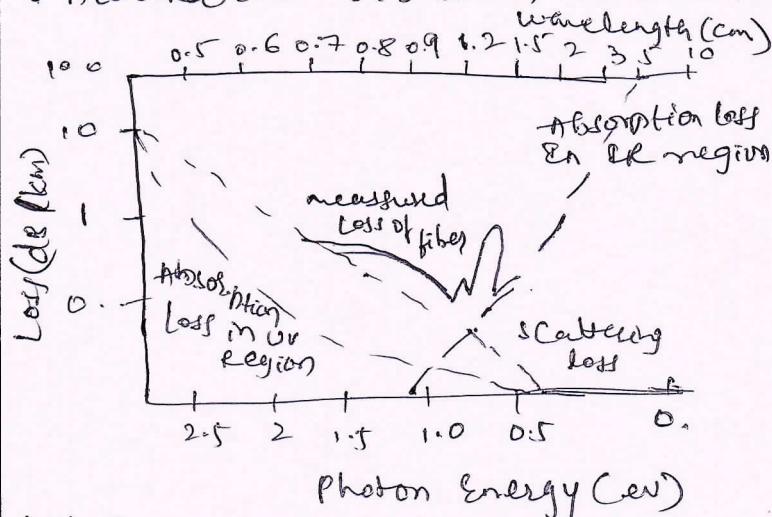 wavelength (cm)
0.5 0.6 0.7 0.8 0.9 1.2 1.5 2 3 5 10
100
10
1
0.
Loss (dB/km)
Absorption loss
in IR region
measured
loss of fiber
Absorption
loss in UV
Region
scattering
loss
2.5 2 1.5 1.0 0.5 0.
Photon Energy (ev)